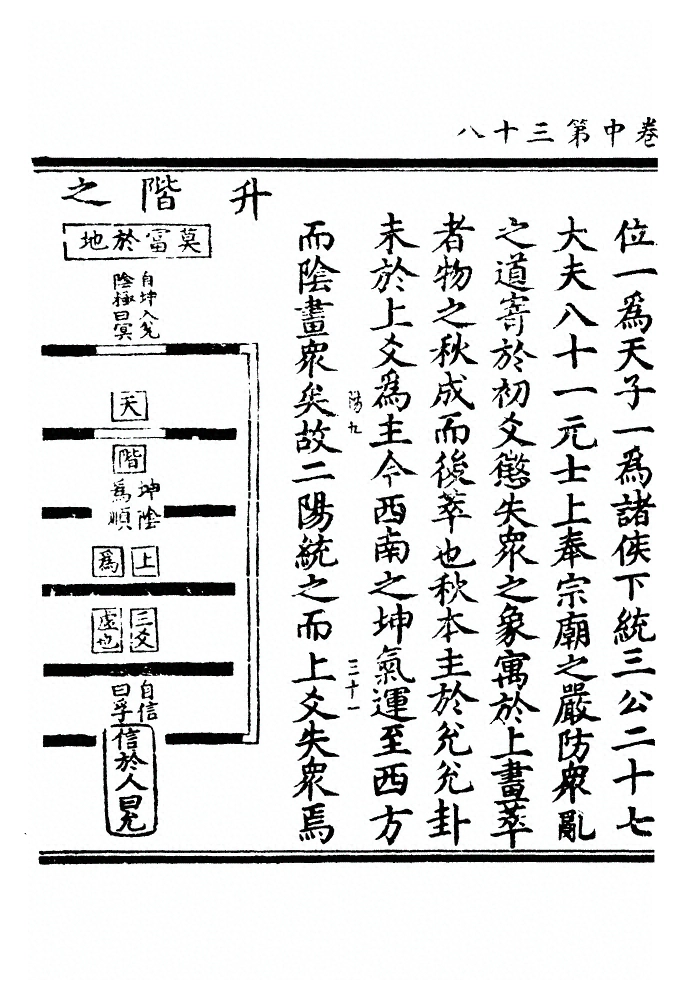 卷中第三十八
位一為天子一為諸侯下統三公二十七
大夫八十一元士上奉宗廟之嚴防眾亂
之道寄於初爻懲失眾之象寓於上畫萃
者物之秋成而後萃也秋本主於兊兊卦
未於上爻為主今西南之坤氣運至西方
而陰畫眾矣故二陽統之而上爻失眾焉
陽九
三十一
升階之
莫富於地
自坤入兊
陰極曰冥
天
階
坤陰
為順
上
為
三爻
虛也
自信
曰孚
信於人曰允